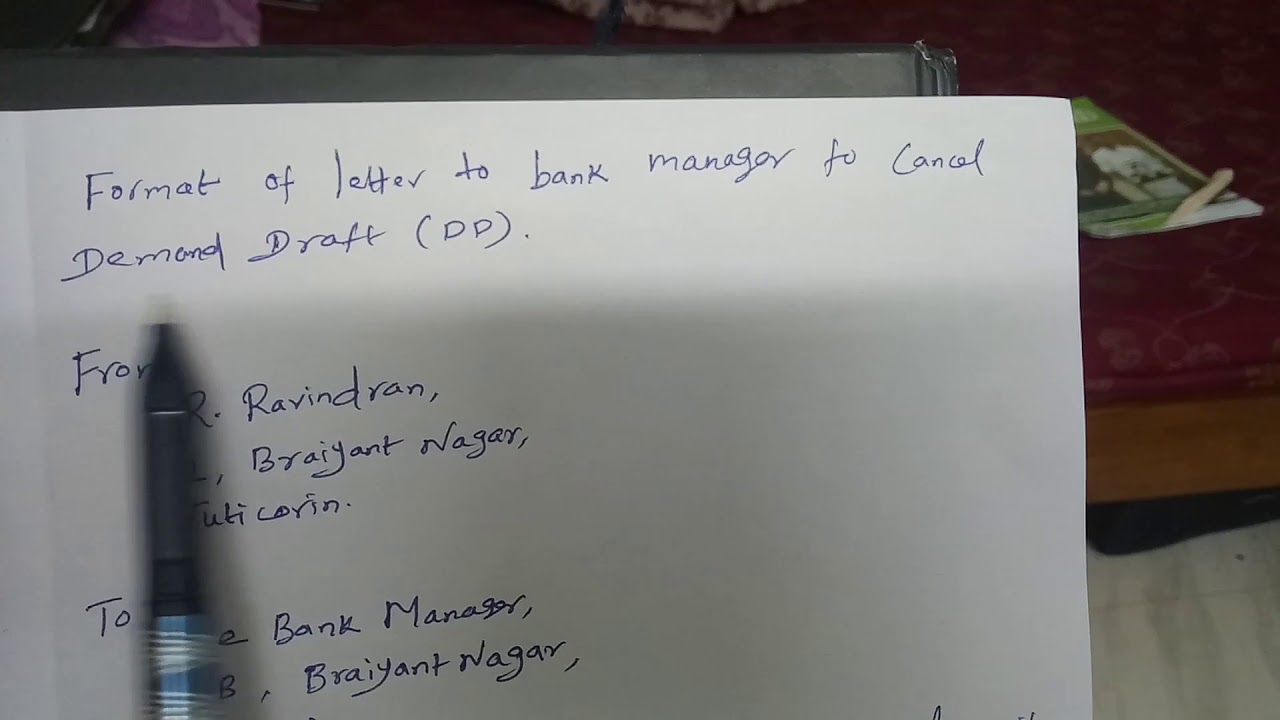 Format of letter to bank manager to Cancel
Demand Draft (DD).
From
R. Ravindran,
, Braiyant Nagar,
Tuticorin.
To
Bank Manager,
B, Braiyant Nagar,